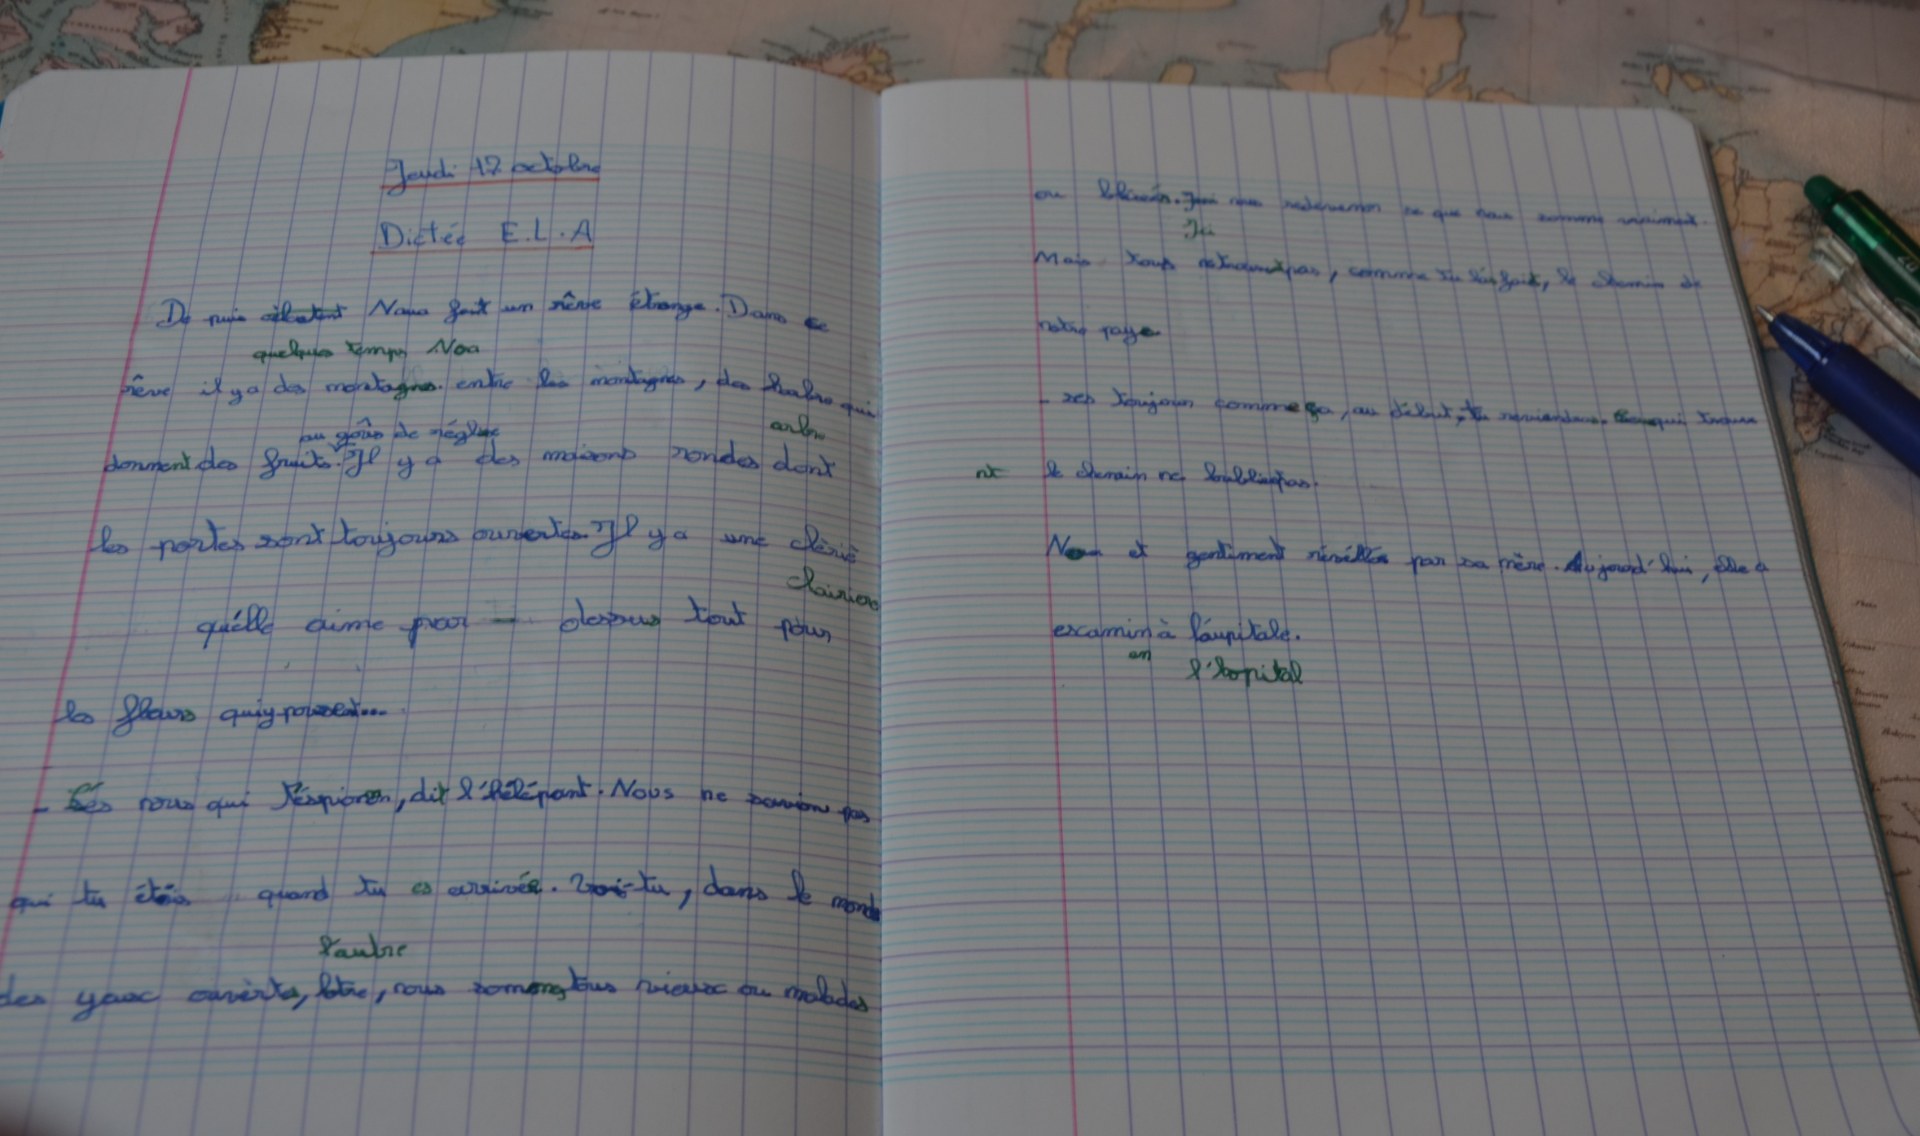 Jeudi 17 octobre
Dictée E.L.A
De puis Naua fait un rêve étrange. Dans ce
quelques temps Noa
rêve il y a des montagnes. entre les montagnes, des qui
arbre
au goûs de réglisse
donnent des fruits. Il y a des maisons rondes dont
les portes sont toujours ouvertes. Il y a une clèriè
clairière
qu'elle aime par - dessus tout pour
les fleurs qui y poussent...
- Cés nous qui , dit l'hélépant. Nous ne savions pas
qui tu étais quand tu es arrivée. Voi-tu, dans le monde
l'autre
des yaux ouverts, lotre, nous somons tous vieux ou malades
ou . Jci nous ce que nous somme vraiment.
Ici
Mais tous pas, comme tu l'as fait, le chemin de
notre pays
- ses toujour comme ça, au début, tu reviendras. qui trouve
nt le chemin ne l'oublie pas.
et gentiment par sa mère. Aujourd'hui, elle a
examin à l'aupitale.
en l'hopital